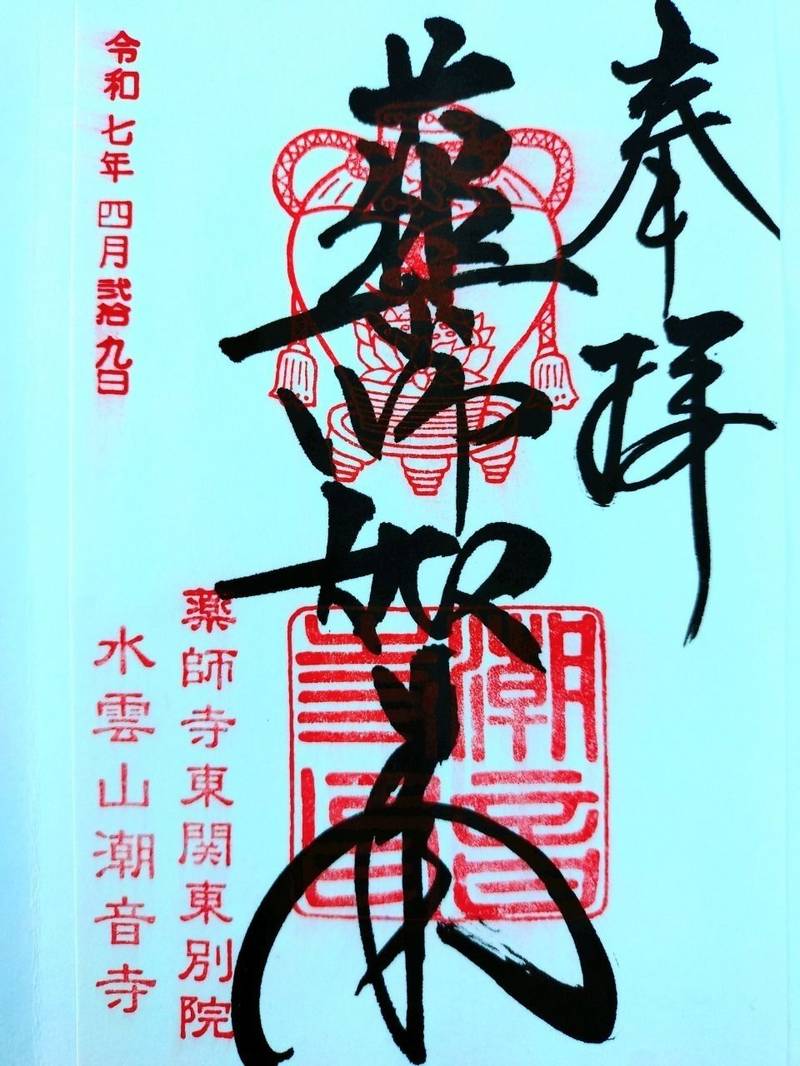 奉拝
薬師如来
潮音
令和七年四月弐拾九日
薬師寺東関東別院
水雲山潮音寺